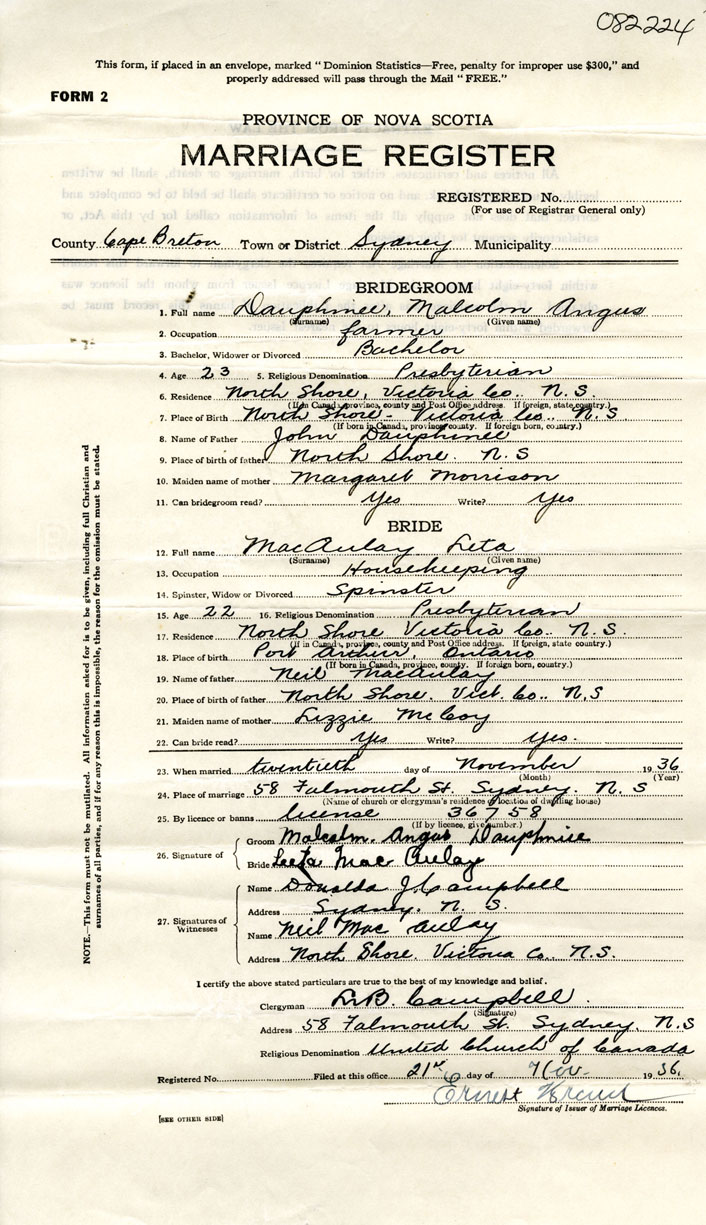 082224
This form, if placed in an envelope, marked "Dominion Statistics—Free, penalty for improper use $300," and
properly addressed will pass through the Mail "FREE."
FORM 2
PROVINCE OF NOVA SCOTIA
MARRIAGE REGISTER
REGISTERED No.
(For use of Registrar General only)
County Cape Breton Town or District Sydney Municipality
BRIDEGROOM
1. Full name Dauphinee, Malcolm Angus
(Surname) (Given name)
2. Occupation farmer
3. Bachelor, Widower or Divorced Bachelor
4. Age 23 5. Religious Denomination Presbyterian
6. Residence North Shore, Victoria Co. N.S.
(If in Canada, province, county and Post Office address. If foreign, state country.)
7. Place of Birth North Shore - Victoria Co.. N.S
(If born in Canada, province, county. If foreign born, country.)
8. Name of Father John Dauphinee
9. Place of birth of father North Shore. N.S
10. Maiden name of mother Margaret Morrison
11. Can bridegroom read? Yes Write? Yes
BRIDE
12. Full name MacAulay Leta
(Surname) (Given name)
13. Occupation Housekeeping
14. Spinster, Widow or Divorced Spinster
15. Age 22 16. Religious Denomination Presbyterian
17. Residence North Shore Victoria Co. N.S.
(If in Canada, province, county and Post Office address. If foreign, state country.)
18. Place of birth Port Arthur, Ontario
(If born in Canada, province, county. If foreign born, country.)
19. Name of father Neil MacAulay
20. Place of birth of father North Shore. Vict. Co.. N.S
21. Maiden name of mother Lizzie McCoy
22. Can bride read? Yes Write? Yes.
23. When married twentieth day of November 1936
(Month) (Year)
24. Place of marriage 58 Falmouth St. Sydney. N. S
(Name of church or clergyman's residence or location of dwelling house)
25. By licence or banns license 36758
(If by licence, give number.)
26. Signature of
Groom Malcolm. Angus Dauphinee
Bride Leeta Mac Aulay
27. Signatures of Witnesses
Name Donalda J. Campbell
Address Sydney. N. S.
Name Neil Mac Aulay
Address North Shore. Victoria Co., N.S.
NOTE.—This form must not be mutilated. All information asked for is to be given, including full Christian and
surnames of all parties, and if for any reason this is impossible, the reason for the omission must be stated.
I certify the above stated particulars are true to the best of my knowledge and belief.
Clergyman Campbell
(Signature)
Address 58 Falmouth St. Sydney. N.S
Religious Denomination United Church of Canada
Registered No. Filed at this office 21st day of Nov. 1936.
Ernest
Signature of Issuer of Marriage Licences.
[SEE OTHER SIDE]